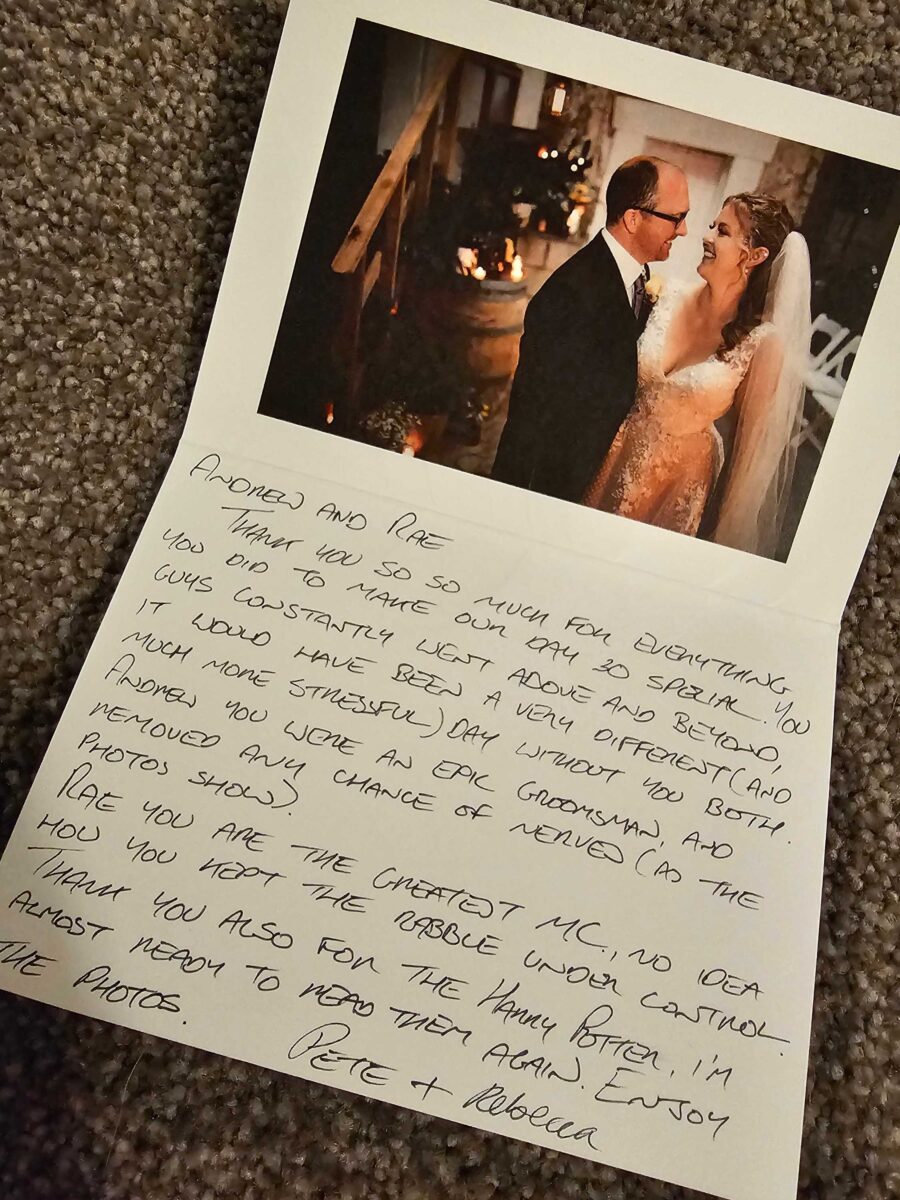 ANDREW AND RAE
THANK YOU SO SO MUCH FOR EVERYTHING
YOU DID TO MAKE OUR DAY SO SPECIAL. YOU
GUYS CONSTANTLY WENT ABOVE AND BEYOND,
IT WOULD HAVE BEEN A VERY DIFFERENT (AND
MUCH MORE STRESSFUL) DAY WITHOUT YOU BOTH.
ANDREW YOU WERE AN EPIC GROOMSMAN, AND
REMOVED ANY CHANCE OF NERVES (AS THE
PHOTOS SHOW).
RAE YOU ARE THE GREATEST MC, NO IDEA
HOW YOU KEPT THE RABBLE UNDER CONTROL.
THANK YOU ALSO FOR THE HARRY POTTER, I'M
ALMOST READY TO READ THEM AGAIN. ENJOY
THE PHOTOS.
PETE + Rebecca